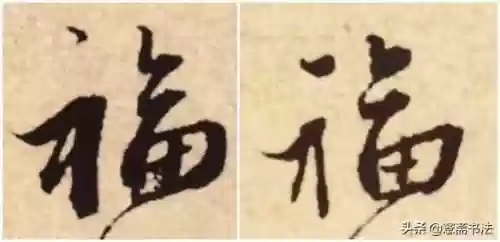 福 福
头条 @意斋书法